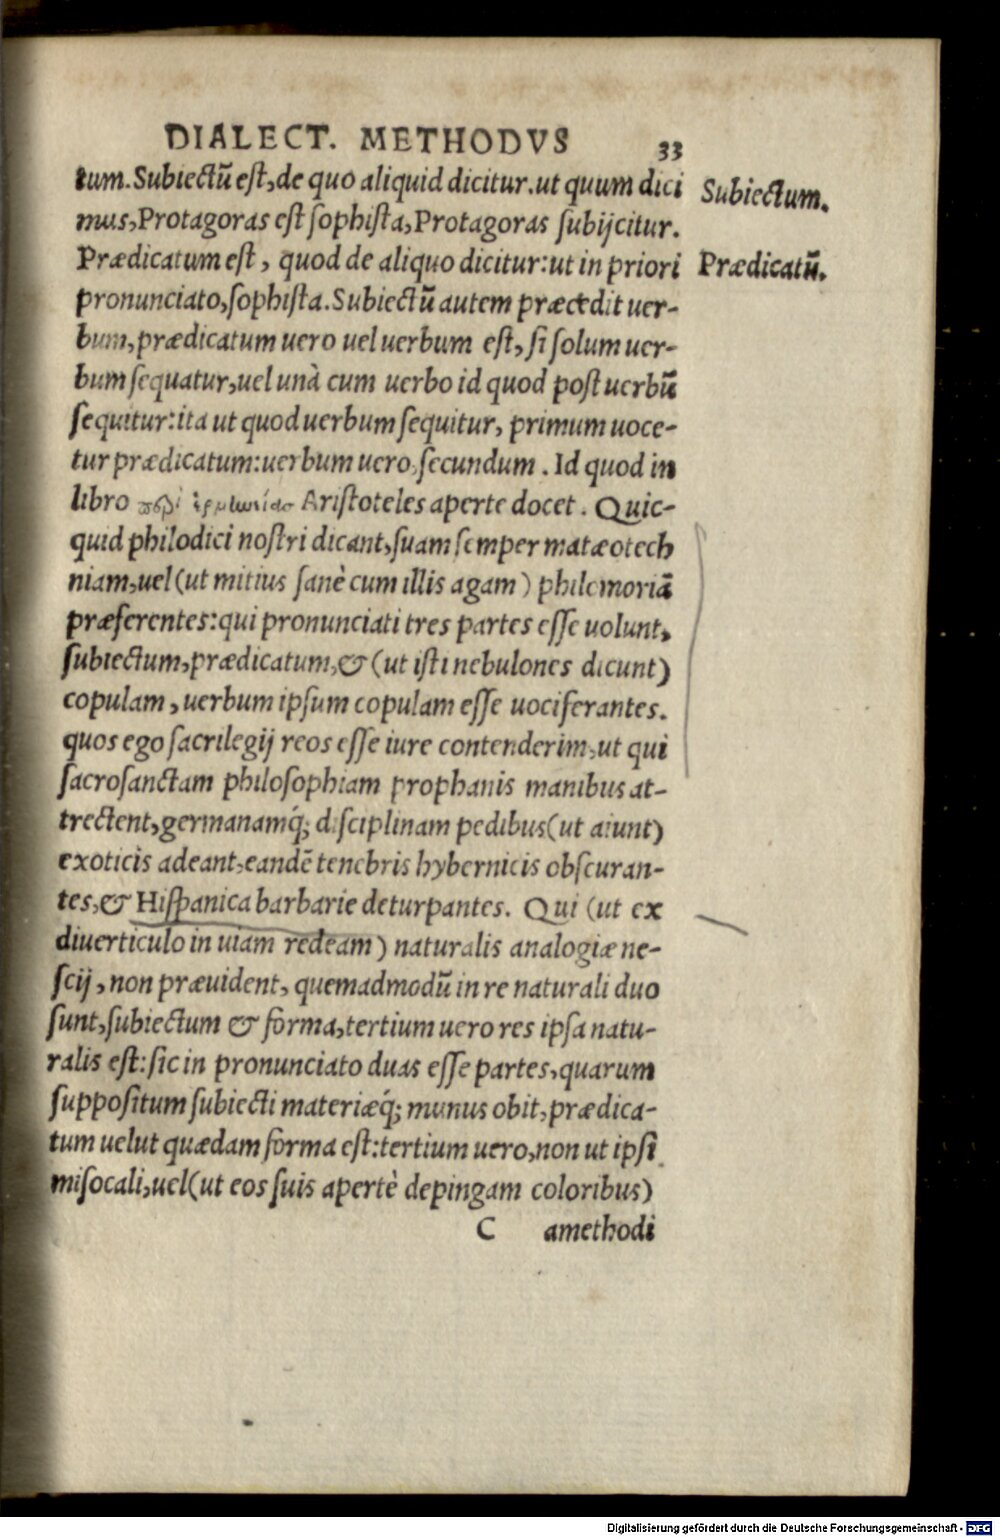 DIALECT. METHODVS 33
tum. Subiectū est, de quo aliquid dicitur. ut quum dici
mus, Protagoras est sophista, Protagoras subijcitur.
Prædicatum est, quod de aliquo dicitur: ut in priori
pronunciato, sophista. Subiectū autem præcedit uer-
bum, prædicatum uero uel uerbum est, si solum uer-
bum sequatur, uel unà cum uerbo id quod post uerbū
sequitur: ita ut quod uerbum sequitur, primum uoce-
tur prædicatum: uerbum uero, secundum. Id quod in
libro Aristoteles aperte docet. Quic-
quid philodici nostri dicant, suam semper matæotech
niam, uel (ut mitius sanè cum illis agam) philomoriā
præferentes: qui pronunciati tres partes esse uolunt,
subiectum, prædicatum, & (ut isti nebulones dicunt)
copulam, uerbum ipsum copulam esse uociferantes.
quos ego sacrilegij reos esse iure contenderim, ut qui
sacrosanctam philosophiam prophanis manibus at-
trectent, germanamq́; disciplinam pedibus (ut aiunt)
exoticis adeant, eandē tenebris hybernicis obscuran-
tes, & Hispanica barbarie deturpantes. Qui (ut ex
diuerticulo in uiam redeam) naturalis analogiæ ne-
scij, non præuident, quemadmodū in re naturali duo
sunt, subiectum & forma, tertium uero res ipsa natu-
ralis est: sic in pronunciato duas esse partes, quarum
suppositum subiecti materiæq́; munus obit, prædica-
tum uelut quædam forma est: tertium uero, non ut ipsi
misocali, uel (ut eos suis apertè depingam coloribus)
C amethodi
Subiectum.
Prædicatū.
Digitalisierung gefördert durch die Deutsche Forschungsgemeinschaft - DFG